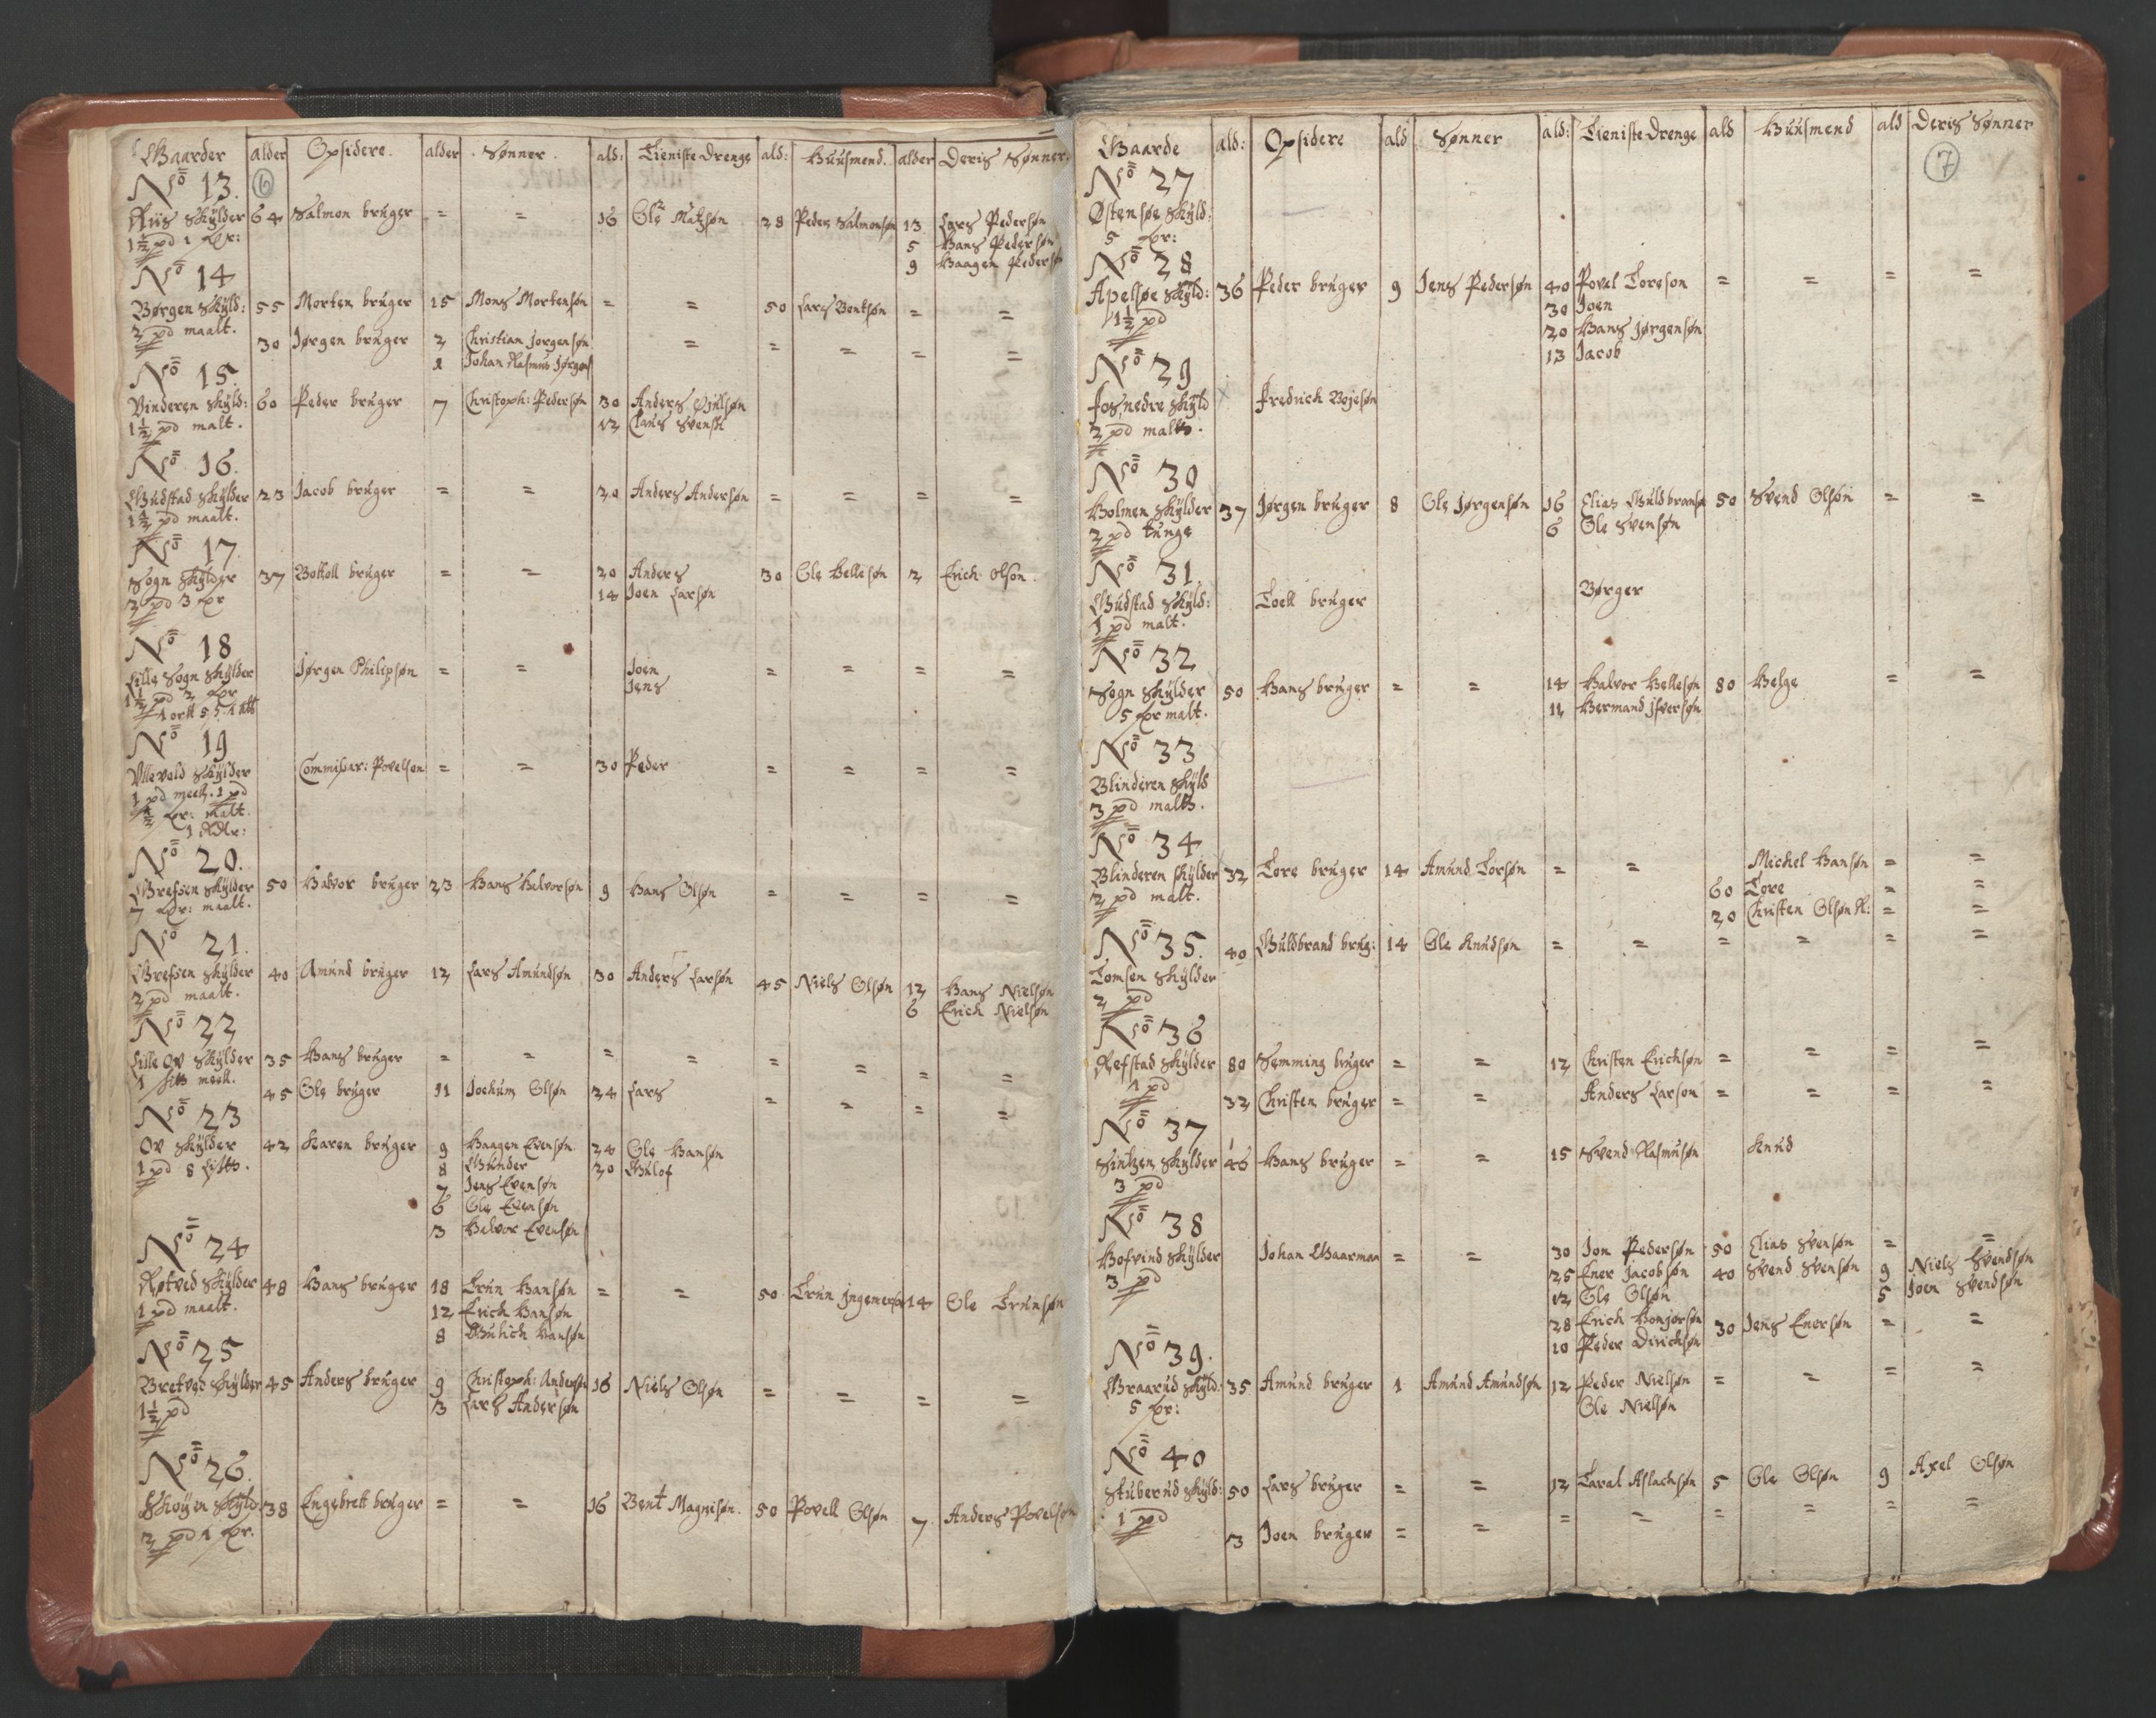 Gaarder alder Opsidere. alder Sønner. ald: Tieniste Drenge ald: Huusmend. alder Deris Sønner.
No 13. 6
Riis skylder 64 Salmon bruger = = 16 Ole Matzsøn 28 Peder Salmonsøn 13 Lars Pedersøn
1½ pd 1 Lpr: 5 Hans Pedersøn
9 Haagen Peders
No 14
Børgen skyld: 55 Morten bruger 15 Mons Mortensøn = = 50 Lars Bentsøn = =
2 pd maalt.
30 Jørgen bruger 2 Christian Jorgensøn = = = = =
1 Johan Rasmus Jørgens
No 15.
Vinderen skyld: 60 Peder bruger 7 Christoph: Pedersøn 30 Anders
1½ pd malt. 12 Claus Svensk
No 16.
Gudstad skylder 23 Jacob bruger = = 20 Anders Andersøn = = = =
1½ pd maalt.
No 17
Sogn skylder 37 Botholl bruger = = 20 Anders 30 Ole Hellesøn 2 Erich Olson.
2 pd 3 Lpr 14 Joen Larsøn
No 18
Lille Sogn skylder Jørgen Philipsøn = = Joen = = = =
1½ pd 2 Lpr Jens
No 19
Ullevold skylder Commisar: Povelsen = = 30 Peder = = = =
1 pd meel. 1 pd
½ Lpr: malt.
1 Rdlr:
No 20.
Grefsen skylder 50 Halvor bruger 23 Hans Halvorsøn 9 Hans Olsøn = = = =
7 Lpr: maalt.
No 21.
Grefsen skylder 40 Amund bruger 12 Lars Amundsøn 30 Anders Larsøn 45 Niels Olsøn 12 Hans Nielsøn
2 pd maalt. 6 Erich Nielsøn
No 22
Lille Ov skylder 35 Hans bruger = = = = = = = =
1 meel.
45 Ole bruger 11 Jochum Olsøn 24 Lars = = = =
No 23
Ov skylder 42 Karen bruger 9 Haagen Evensøn 24 Ole Hansøn
1 pd 8 8 Gunder 20 Gulof
7 Jens Evensøn
6 Ole Evensøn
3 Halvor Evensøn
No 24
Røtved skylder 48 Hans bruger 18 Trun Hansøn = = 50 Trun Ingemers 14 Ole Trunsøn
1 pd maalt. 12 Erich Hansøn
8 Gulich Hansøn
No 25
Bretvet skylder 45 Anders bruger 9 Christoph: Andersøn 16 Niels Olsøn = = = =
1½ pd 3 Lars Andersøn
No 26.
Schøyen skyld: 38 Engebrett bruger = = 16 Bent Magnisøn. 50 Povell Olsøn 7 Anders Povelsøn
2 pd 1 Lpr.
Gaarde ald: Opsidere ald Sønner ald: Tieniste Drenge ald Huusmend ald Deris Sønner
No 27 7
Østensøe skyld:
5 Lpr:
No 28
Apelsøe skyld: 36 Peder bruger 9 Jens Pedersøn 40 Povel Toreson = = = =
1½ pd 30 Joen
20 Hans Jørgensøn
13 Jacob
No 29
Fos nedre skyld Fredrich Bojesøn
2 pd malt.
No 30
Holmen skylder 37 Jørgen bruger 8 Ole Jørgensøn 16 Elias Guldbransø 50 Svend Olsøn = =
2 pd tunge 6 Ole Svensøn
No 31.
Gudstad skyld: Toell bruger Børger
1 pd malt.
No 32
Sogn skylder 50 Hans bruger = = 14 Halvor Hellesøn 80 Helge = =
5 Lpr malt. 11 Hermand Ifversøn
No 33
Blinderen skyld
3 pd malt.
No 34
Blinderen skylder 32 Tore bruger 14 Amund Torsøn = = Michel Hansøn = =
2 pd malt. 60 Tore = =
20 Christen Olsøn R: = =
No 35. 40 Guldbrand brug: 14 Ole Knudsøn = = = = = =
Tomsen skylder
2 pd
No 36
Refstad skylder 80 Semming bruger = = 12 Christen Erichsøn = = = =
1 pd
32 Christen bruger = = Anders Larson = = = =
No 37
Sintzen skylder 46 Hans bruger = = 15 Svend Rasmusøn Knud
3 pd
No 38
Hofvind skylder Johan Gaarman = = 30 Jon Pedersøn 50 Elias Svensøn = =
3 pd 25 Ener Jacobsøn 40 Svend Svensøn 9 Niels Svendsøn
12 Ole Olsøn 5 Joen Svendsøn
28 Erich Honjørsøn 30 Jens Enersøn = =
10 Peder Dirichsøn
No 39.
Braarud skyld: 35 Amund bruger 1 Amund Amundsøn 12 Peder Nielsøn = = = =
5 Lpr: Ole Nielsøn
No 40
Stuberud skyld: 50 Lars bruger = = 12 Taral Aslachsøn 5 Ole Olsøn 9 Axel Olsøn
1 pd
3 Joen bruger = = = = = = = =